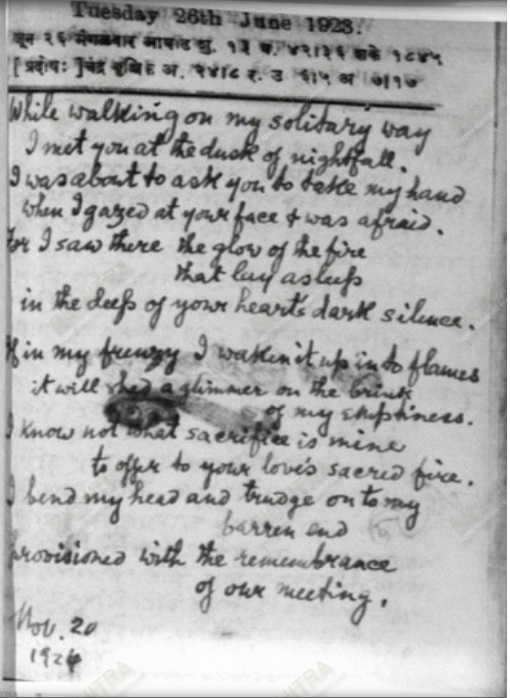 Tuesday 26th June 1923.
जून २६ मंगळवार आषाढ शु. १३ घ. ४२।३६ शके १८४५
[ प्रदोषः ] चंद्र वृश्चि अ. २४।८ र. उ ६।५ अ ७।१७
While walking on my solitary way
I met you at the dusk of nightfall.
I was about to ask you to take my hand
when I gazed at your face & was afraid.
For I saw there the glow of the fire
that lay asleep
in the deep of your heart's dark silence.
If in my frenzy I waken it up into flames
it will shed a glimmer on the brink
of my emptiness.
I know not what sacrifice is mine
to offer to your love's sacred fire.
I bend my head and trudge on to my
barren end
provisioned with the remembrance
of our meeting.
Nov. 20
1924